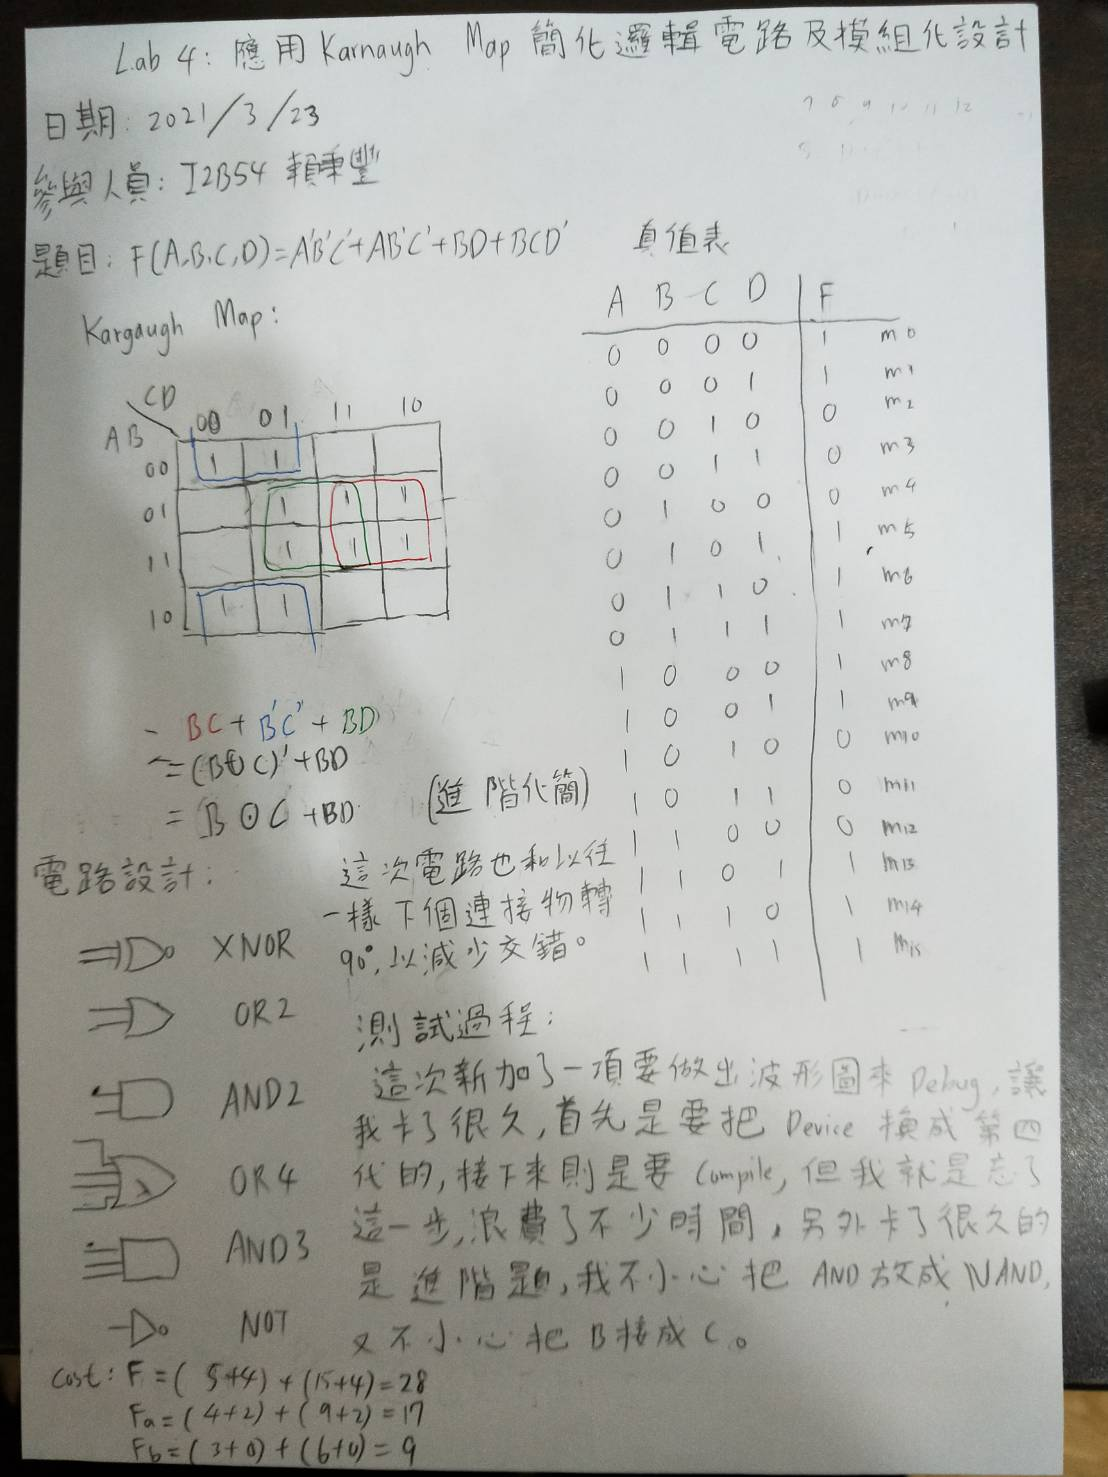 Lab 4: 應用 Karnaugh Map 簡化邏輯電路及模組化設計
日期: 2021/3/23
參與人員: I2B54 賴秉豐
題目: F(A,B,C,D)=A'B'C'+AB'C'+BD+BCD'
Kargaugh Map:
CD
AB
00 01 11 10
00 1 1
01 1 1 1
11 1 1 1
10 1 1
BC + B'C' + BD
=(B⊕C)'+BD
= B⊙C +BD (進階化簡)
真值表
A B C D F
0 0 0 0 1 m0
0 0 0 1 1 m1
0 0 1 0 0 m2
0 0 1 1 0 m3
0 1 0 0 0 m4
0 1 0 1 1 m5
0 1 1 0 1 m6
0 1 1 1 1 m7
1 0 0 0 1 m8
1 0 0 1 1 m9
1 0 1 0 0 m10
1 0 1 1 0 m11
1 1 0 0 0 m12
1 1 0 1 1 m13
1 1 1 0 1 m14
1 1 1 1 1 m15
電路設計:
XNOR
OR2
AND2
OR4
AND3
NOT
這次電路也和以往
一樣下個連接物轉
90°,以減少交錯。
測試過程:
這次新加了一項要做出波形圖來Debug,讓
我卡了很久,首先是要把 Device 換成第四
代的,接下來則是要 Compile,但我就是忘了
這一步,浪費了不少時間,另外卡了很久的
是進階題,我不小心把 AND 放成 NAND,
又不小心把 B 接成 C。
Cost: F = ( 5+4) + (15+4)=28
Fa=( 4+2) + ( 9+2) = 17
Fb=( 3+0) + (6+0) = 9